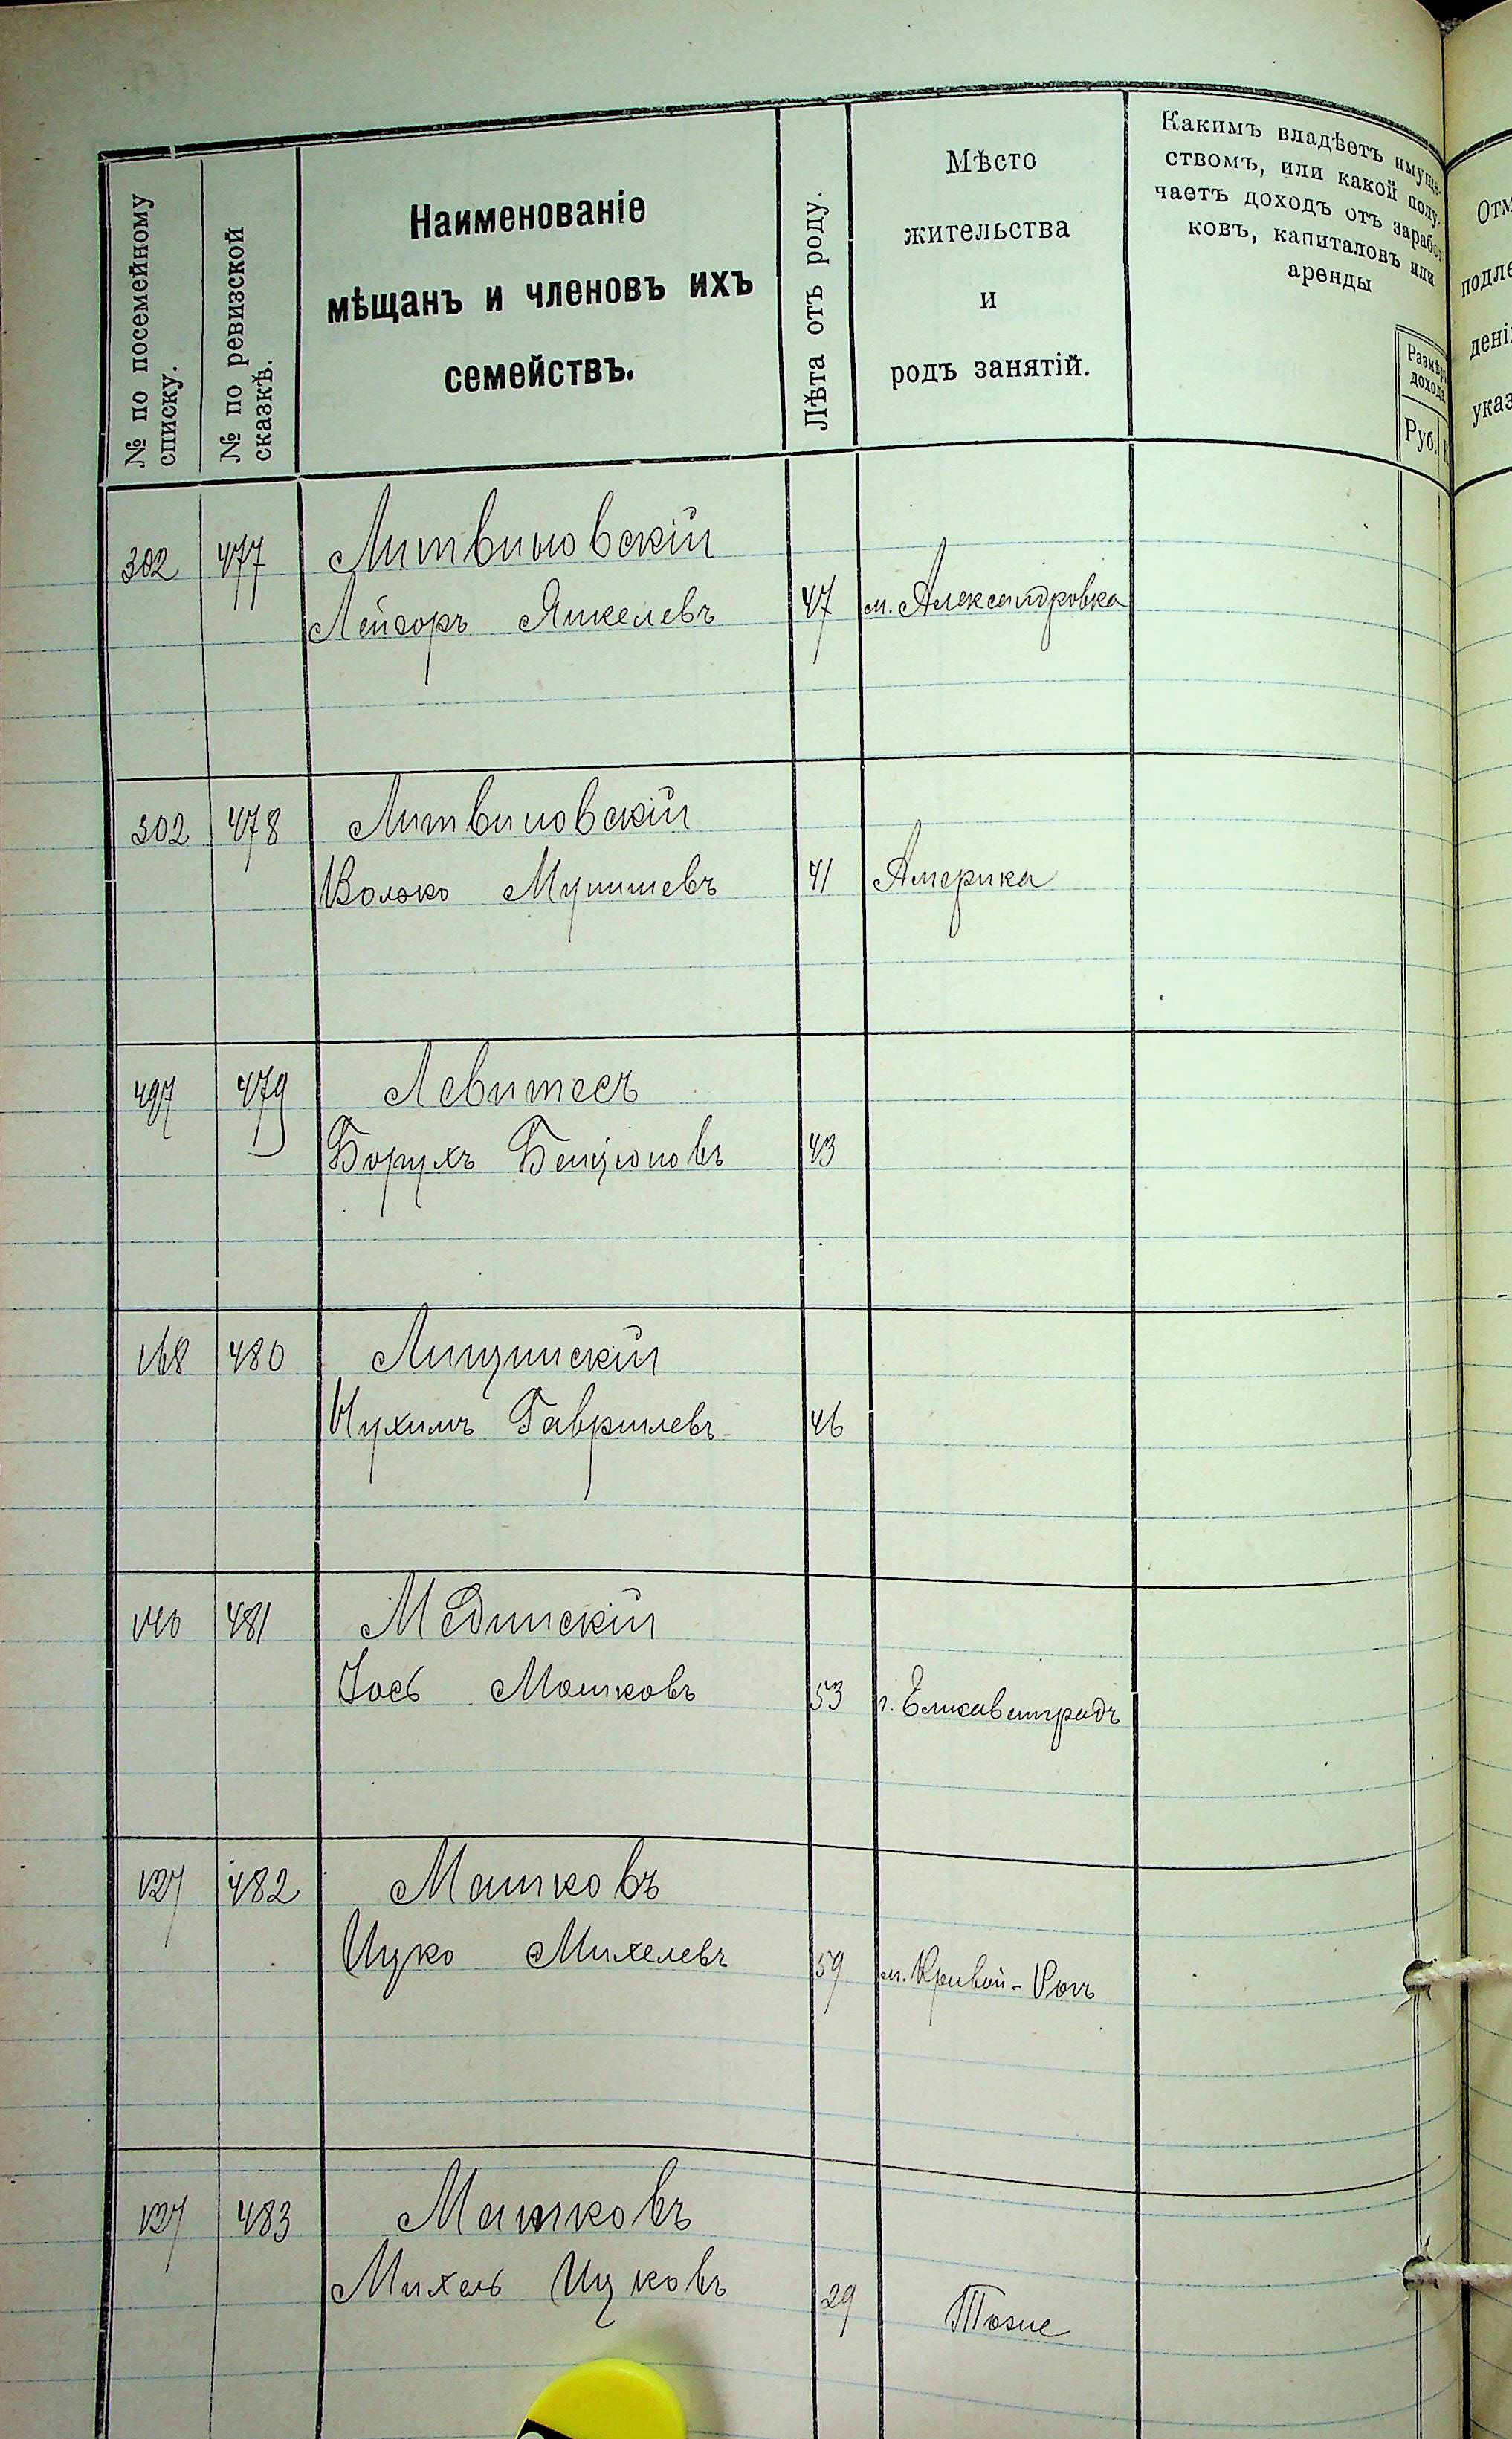 № по посемейному
списку.
№ по ревизской
сказкѣ.
Наименованіе
мѣщанъ и членовъ ихъ
семействъ.
Лѣта отъ роду.
Мѣсто
жительства
и
родъ занятій.
Какимъ владѣетъ имуще-
ствомъ, или какой полу-
чаетъ доходъ отъ заработ-
ковъ, капиталовъ или
аренды
Размѣръ
дохода
Руб.
302 477 Литвиновскій
Лейзоръ Янкелевъ 47 м. Александровка
302 478 Литвиновскій
Волько Мунишевъ 41 Америка
497 479 Левитесъ
Борухъ Бенціоновъ 43
168 480 Липпинскій
Нухимъ Гаврилевъ 46
140 481 Мединскій
Іось Мошковъ 53 г. Елисаветградъ
127 482 Машковъ
Ицко Михелевъ 59 м. Кривой-Рогъ
127 483 Машковъ
Михель Ицковъ 29 Тоже